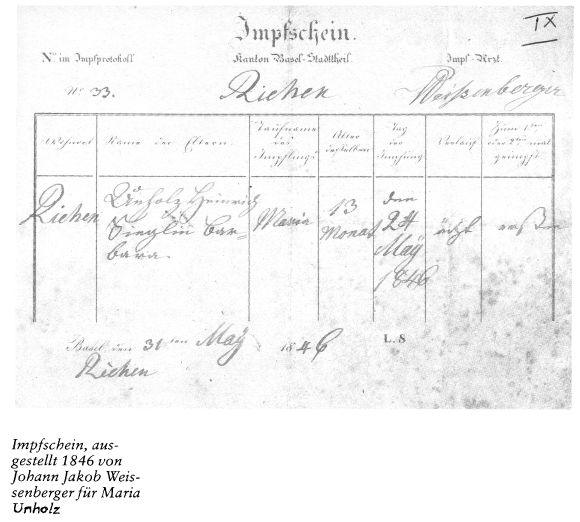 IX
Impfschein.
No im Impfprotokoll Kanton Basel-Stadttheil. Impf-Arzt.
No 33. Riehen Weißenberger
Wohnort Name der Eltern. Taufname des Impflings Alter desselben Tag der Impfung Verlauf Zum 1ten oder 2ten mal geimpft
Riehen Unholz Heinrich Maria 13 den ächt ersten
Sieglin Bar- Monat 24
bara. May
1846
Basel den 31 ten May 1846 L. S
Riehen
Impfschein, aus-
gestellt 1846 von
Johann Jakob Weis-
senberger für Maria
Unholz